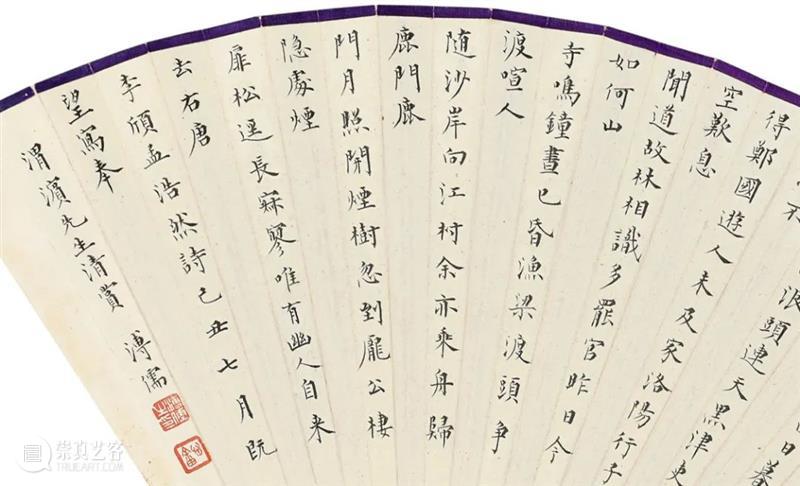 日暮
浪頭連天黑津吏
得鄭國遊人未及家洛陽行子
空歎息
聞道故林相識多罷官昨日今
如何山
寺鳴鐘晝已昏漁梁渡頭爭
渡喧人
隨沙岸向江村余亦乘舟歸
鹿門鹿
門月照開煙樹忽到龐公棲
隱處煙
扉松逕長寂寥唯有幽人自来
去右唐
李頎孟浩然詩己丑七月既
望寫奉
渭濱先生清賞 溥儒
崇真艺客
TRUEART.COM